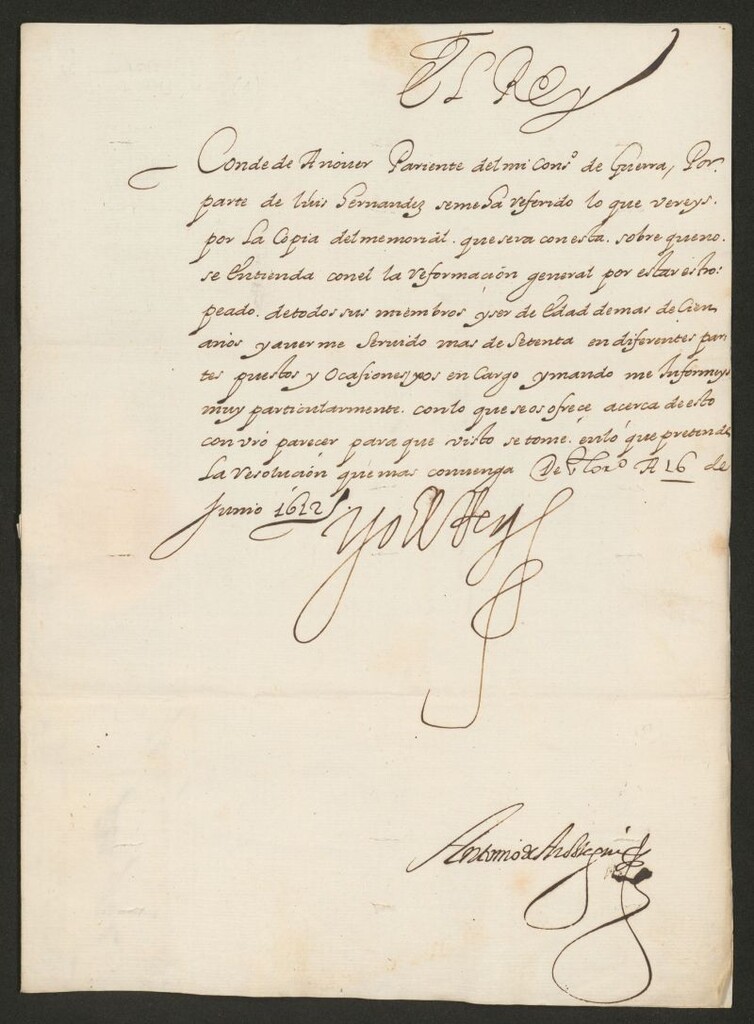 El Rey
Conde de Añouer Pariente del mi Cons.º de Guerra, Por
parte de luis Hernandez se me ha referido lo que vereys
por La Copia del memorial que sera con esta sobre que no
se Entienda con el la reformación general por estar estro-
peado de todos sus miembros y ser de Edad de mas de Cien
años y auerme Seruido mas de Setenta en diferentes par
tes puestos y Ocasiones, yos en Cargo y mando me Informeys
muy particularmente con lo que se os ofrece acerca de esto
con vro parecer para que visto se tome en lo que pretende
La resolución que mas conuenga De S Lor.º A 16 de
Junio 1612
Yo el Rey
Antonio de